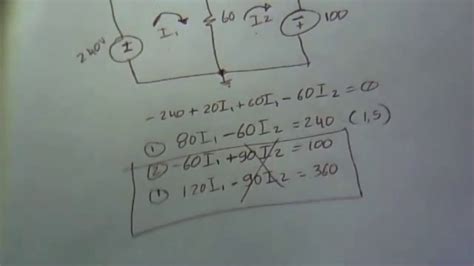 60 I₂ 100
240V ± I₁
-240+20I₁+60I₁-60I₂=0
① 80I₁-60I₂=240 (1,5)
② -60I₁+90I₂=100
① 120I₁-90I₂=360